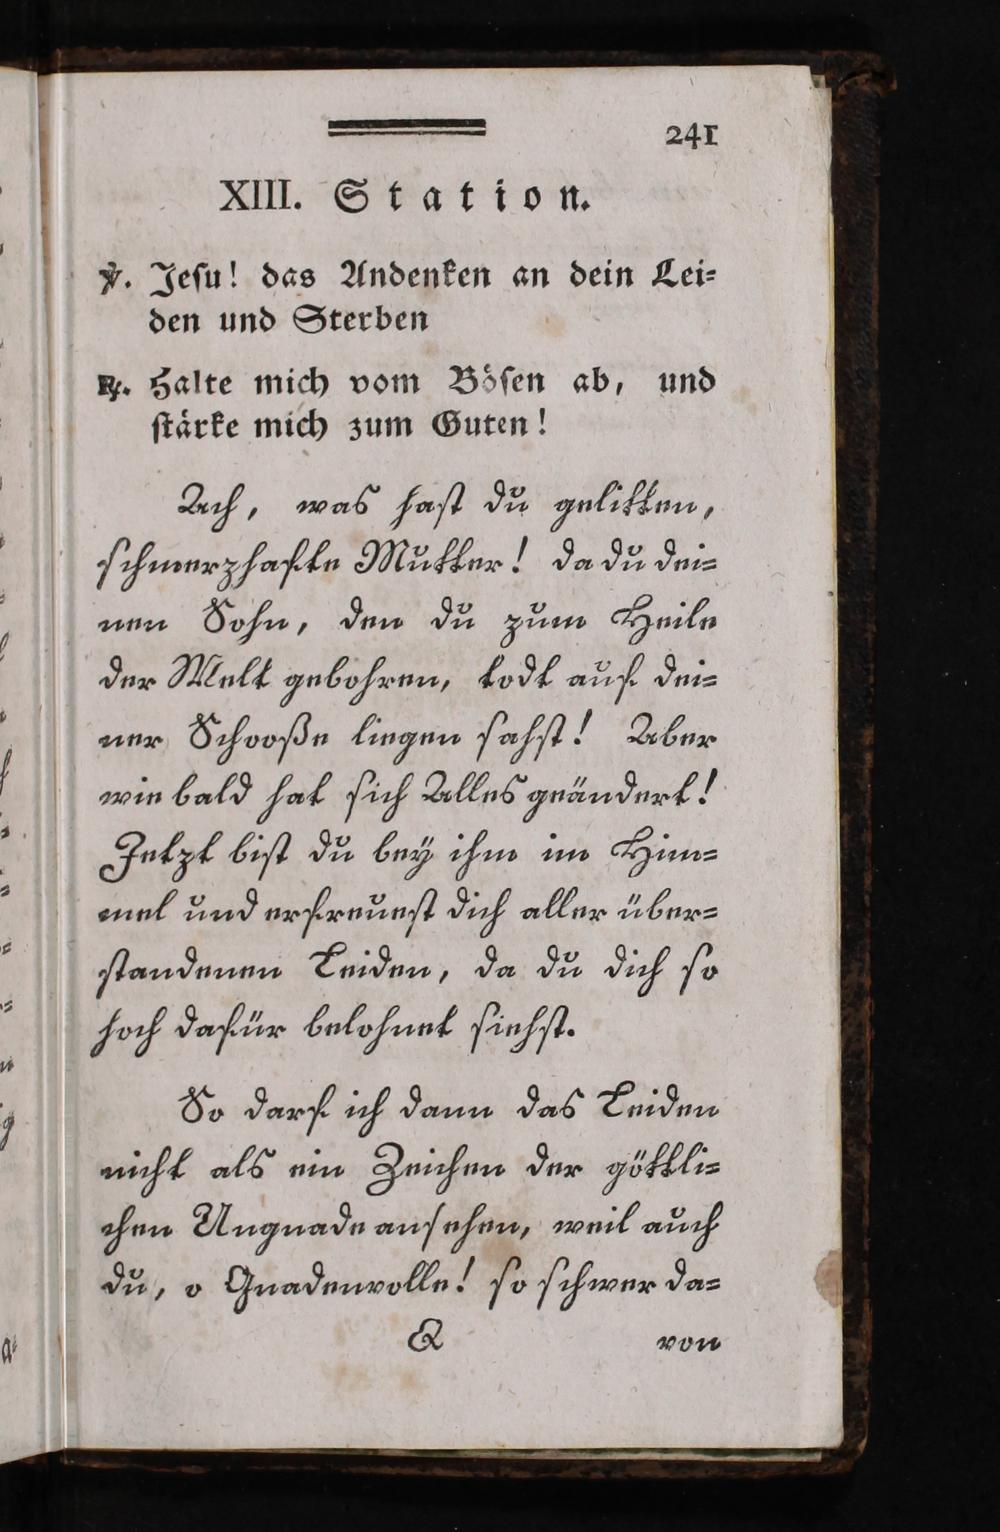 241
XIII. Station.
℣. Jesu! das Andenken an dein Lei⸗
den und Sterben
℟. Halte mich vom Bösen ab, und
stärke mich zum Guten!
Ach, was hast du gelitten,
schmerzhafte Mutter! da du dei⸗
nen Sohn, den du zum Heile
der Welt gebohren, todt auf dei⸗
ner Schooße liegen sahst! Aber
wie bald hat sich Alles geändert!
Jetzt bist du bey ihm im Him⸗
mel und erfreuest dich aller über⸗
standenen Leiden, da du dich so
hoch dafür belohnet siehst.
So darf ich dann das Leiden
nicht als ein Zeichen der göttli⸗
chen Ungnade ansehen, weil auch
du, o Gnadenvolle! so schwer da⸗
Q von